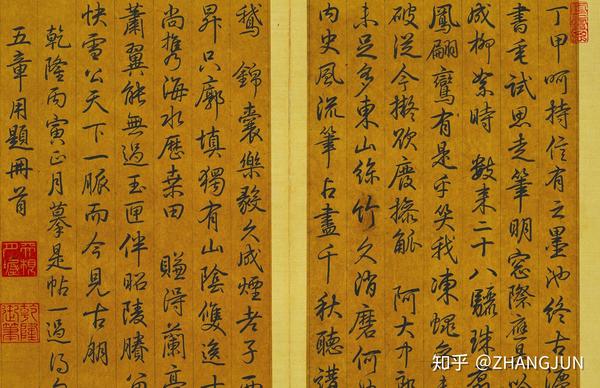 丁甲呵持信有之墨池終古
書試思走筆明窗際應是
成柳絮時 數來二十八驪珠
鳳翩鸞有是乎笑我凍蠅
破從今擬欲廢操觚 阿大中郎
未足多東山絲竹久消磨何
内史風流筆占盡千秋聽講
鵝 錦囊樂毅久成煙老子西
昇只廓填獨有山陰雙逸
尚攜海水歷桑田 賺得蘭亭
蕭翼能無過玉匣伴昭陵賸
快雪公天下一脈而今見古朋
乾隆丙寅正月摹是帖一過得
五章用題冊首
乾隆御筆
知乎 @ZHANGJUN